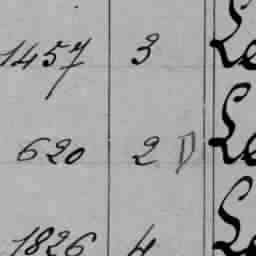 1457 3 Le
620 2 D Le
1826 4 Le